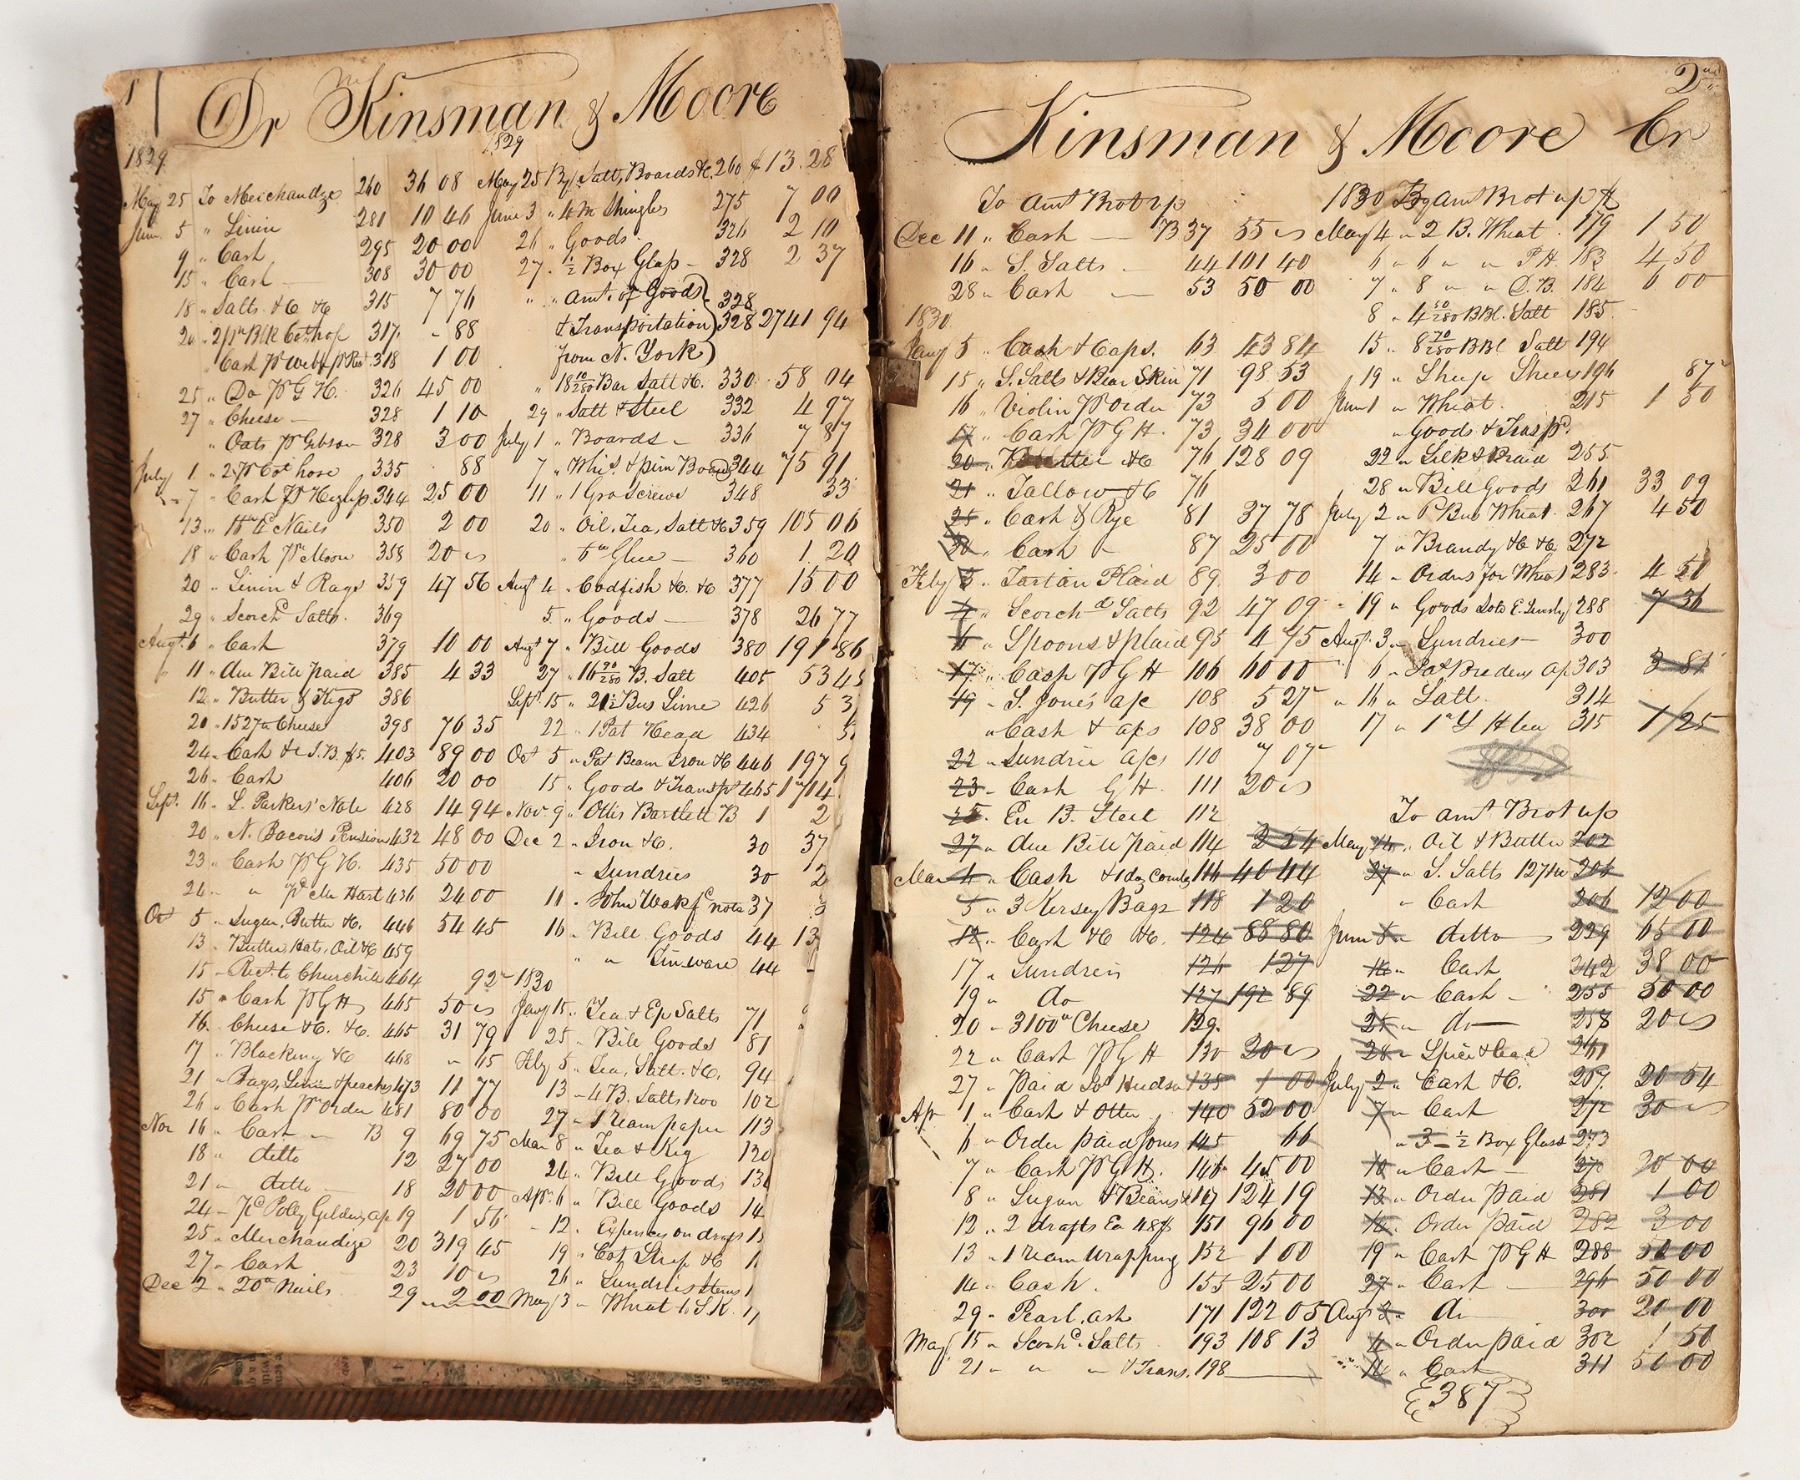 1
Dr Kinsman & Moore
1829
1829
May 25 To Merchandze 260 36 08
June 5 " Linin 281 10 46
9 " Cash 295 20 00
15 " Cash 308 30 00
18 " Salts &C &c 315 7 76
20 " 2 pr Blk Cot hose 317 - 88
" Cash 318 1 00
25 " Do Pr G H. 326 45 00
27 " Cheese 328 1 10
" Oats Pr Gibson 328 3 00
July 1 " 2 Pr Cot hose 335 88
7 " Cash Pr 344 25 00
13 " Nails 350 2 00
18 " Cash Pr Moore 358 20
20 " Linin & Rags 359 47 56
29 " Scorchd Salts 369
Augt 6 " Cash 379 10 00
11 " due Bill paid 385 4 33
12 " Butter & Kegs 386
20 " 1527 Cheese 398 76 35
24 " Cash 403 89 00
26 " Cash 406 20 00
Sept. 16 " L. Parkers Note 428 14 94
20 " N. Bacons Pension 432 48 00
23 " Cash Pr G H. 435 50 00
24 " " Hart 436 24 00
Oct 5 " Sugar, Butter &c. 446 54 45
13 " Butter Oil &C 459
15 " Churchill 464 92
15 " Cash Pr G H 465 50
16 " Cheese &c. &c. 465 31 79
17 " Blacking &C 468 " 15
21 " Rags, Linin & peaches 473 11 77
26 " Cash Pr Order 481 80 00
Nov 16 " Cash B 9 69 75
18 " ditto 12 27 00
21 " ditto 18 20 00
24 " 19 1 56
25 " Merchandize 20 319 45
27 " Cash 23 10
Dec 2 " 20 Nails 29 " 2 00
May 25 By Salt, Boards &c. 260 $ 13.28
June 3 " 4 M Shingles 275 7 00
26 " Goods 326 2 10
27 " 1/2 Box Glass 328 2 37
" " Amt. of Goods 328
& Transportation 328 2741 94
from N. York
" 18 10/280 Bar Salt &c. 330 58 04
29 " Salt & Steel 332 4 97
July 1 " Boards 336 7 87
7 " 344 75 91
11 " 1 Gro Screws 348 33
20 " Oil, Tea, Salt &c 359 105 06
" Glue 360 1. 20
Augt 4 " Codfish &C. &C 377 15 00
5. " Goods 378 26 77
Augt 7 " Bill Goods 380 191 86
27 " B. Salt 405 53 45
Sept. 15 " Bus Lime 426 5 3
22 " 1 Pat Head 434
Oct 5 " Pat Beam Iron &C 446 197
15 " Goods & Transpt 465 1714
Nov 9 " Ottis Bartlett B 1 2
Dec 2 " Iron &C. 30 37
" Sundries 30 2
11 " John note 37 3
16 " Bill Goods 44 13
" " Tin ware 44
1830
Jany 15 " Tea & Ep Salts 71
25 " Bill Goods 81
Feby 5 " Tea, Salt. &C. 94
13 " 4 B. Salts 102
27 " 1 ream paper 113
Mar 8 " Tea & Keg 120
24 " Bill Goods 13
Apr. 6 " Bill Goods 14
12 " Expences on drafts 1
19 " &C 1
26 " Sundries Items 1
May 3 " Wheat
2nd
Kinsman & Moore Cr
To amt Brot up
Dec 11 " Cash B 37 55
16 " S. Salts 44 101 40
28 " Cash 53 50 00
1830
Jany 5 " Cash & Caps. 63 43 84
15 " S. Salts & Bear Skin 71 98 53
16 " Violin Pr order 73 5 00
" Cash Pr G H. 73 34 00
20 " Butter &C 76 128 09
21 " Tallow &C 76
25 " Cash & Rye 81 37 78
30 " Cash 87 25 00
Feby 3 " Tartan Plaid 89 3 00
4 " Scorchd Salts 92 47 09
6 " Spoons & plaid 95 4 45
17 " Cash Pr G H 106 60 00
19 " S. Jones a/c 108 5 27
" Cash & a/cs 108 38 00
22 " Sundrie a/cs 110 7 07
23 " Cash G H. 111 20
25 " En B. Steel 112
27 " due Bill paid 114 3 24
Mar 4 " Cash 116 46 44
5 " 3 Kersey Bags 118 1 20
12 " Cash &C &c. 124 88 80
17 " Sundries 126 1 27
19 " do 127 192 89
20 " 3100 Cheese 129
22 " Cash Pr G H 130 20
27 " paid Hudson 135 1 00
Ap. 1 " Cash & Otter 140 52 00
6 " Order paid Jones 145 66
7 " Cash Pr G H. 146 45 00
8 " Sugar & Beans 147 124 19
12 " 2 drafts 151 96 00
13 " 1 ream Wrapping 152 1 00
14 " Cash. 155 25 00
29 " Pearl. ash 171 122 05
May 15 " Scorchd. Salts 193 108 13
21 " " " & Trans. 198
1830 By amt Brot up
May 4 " 2 B. Wheat 179 1 50
6 " 6 " " P. H. 183 4 50
7 " 8 " " D. B. 184 6 00
8 " 4 50/280 BBl. Salt 185
15 " 8 BBl Salt 194
19 " Sheep Shears 196 87
June 1 " Wheat. 215 1 50
" Goods & Transp.
22 " Silk & Braid 255
28 " Bill Goods 261 33 09
July 2 " Bus Wheat 267 4 50
7 " Brandy &c &c 272
14 " Orders for Wheat 283 4 51
19 " Goods 288 7 36
Augt. 3 " Sundries 300
6 " 303 3 81
16 " Salt. 314
17 " 1 Y H tea 315 1 25
To amt Brot up
May 14 " Oil & Butter 202
27 " S. Salts 206
" Cash 206 12 00
June 8 " ditto 229 65 00
16 " Cash 242 38 00
22 " Cash 255 50 00
25 " do 258 20
28 " Spice & lead 261
July 2 " Cash &C. 267 20 54
7 " Cash 272 30
" 3 1/2 Box Glass 273
10 " Cash 276 20 00
13 " Order paid 281 1 00
14 " Order paid 282 3 00
19 " Cash Pr G H 288 50 00
27 " Cash 296 50 00
Augt 3 " do 300 20 00
4 " Order paid 302 1 50
14 " Cash 311 50 00
387